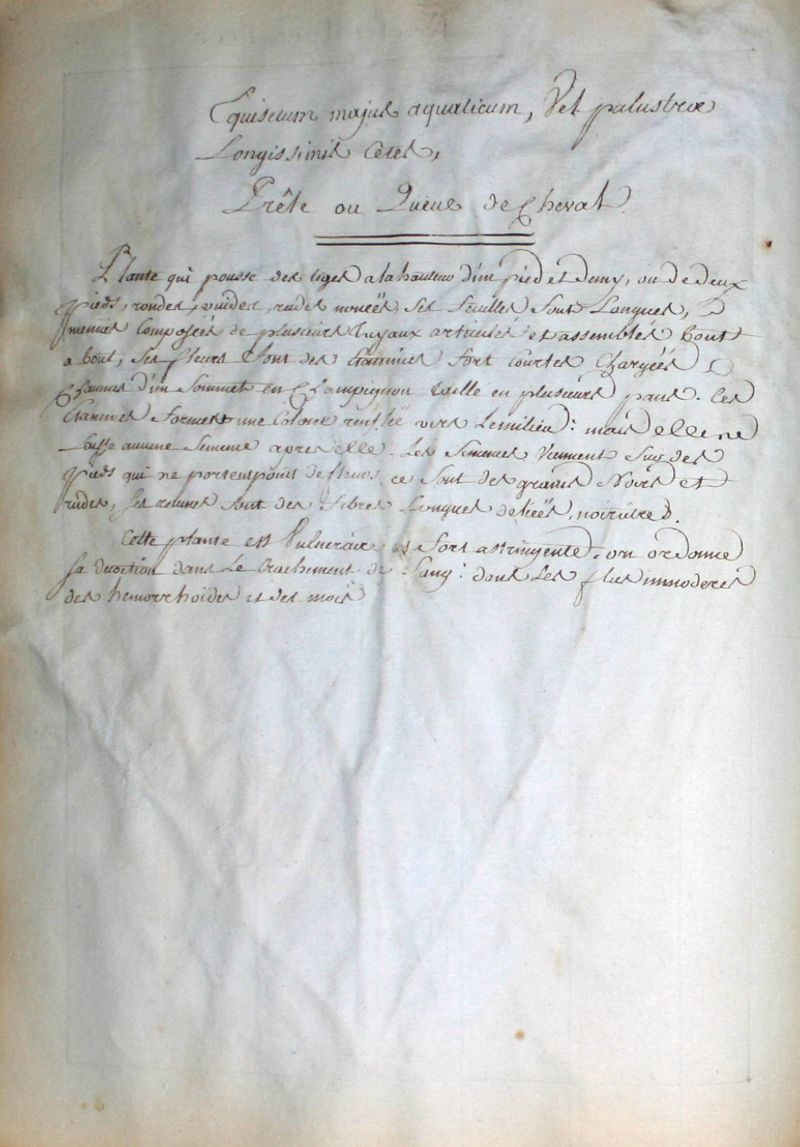 Equisetum majus aquaticum, Vel palustrae
Longissimis Cetes,
Prêle ou Queue de Cheval.
Plante qui pousse des tiges a la hauteur d'un pied et demy, ou de deux
pieds, rondes, vuides, rudes nouées, Ses feuilles Sont Longues,
menues Composées de plusieurs tuyaux articulés et assemblés bout
a bout, Ses fleurs Sont des Etamines fort Courtes Chargées
Chacunes d'un Sommet en Champignon taillé en plusieurs pans. Ces
Etamines forment une Colone renflée vers Le milieu: mais elle ne
laisse aucune Semence apres elle. Les Semences Viennent Sur des
pieds qui ne portent point de fleurs, ce Sont des grains Noirs et
rudes, Ses racines Sont des fibres Longues deliées, noirâtres.
Cette plante est Vulneraire et fort astringente, on ordonne
Sa decoction dans Le Crachement de Sang: dans Les flus immoderés
des hemorrhoides et des mois